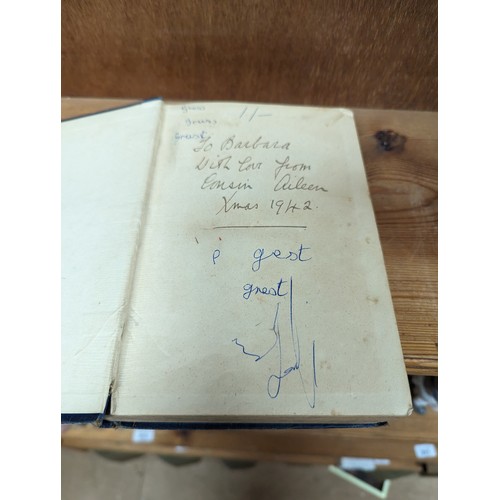 1/-
guest
To Barbara
With Love from
Cousin Aileen
Xmas 1942.
p gest
gnest